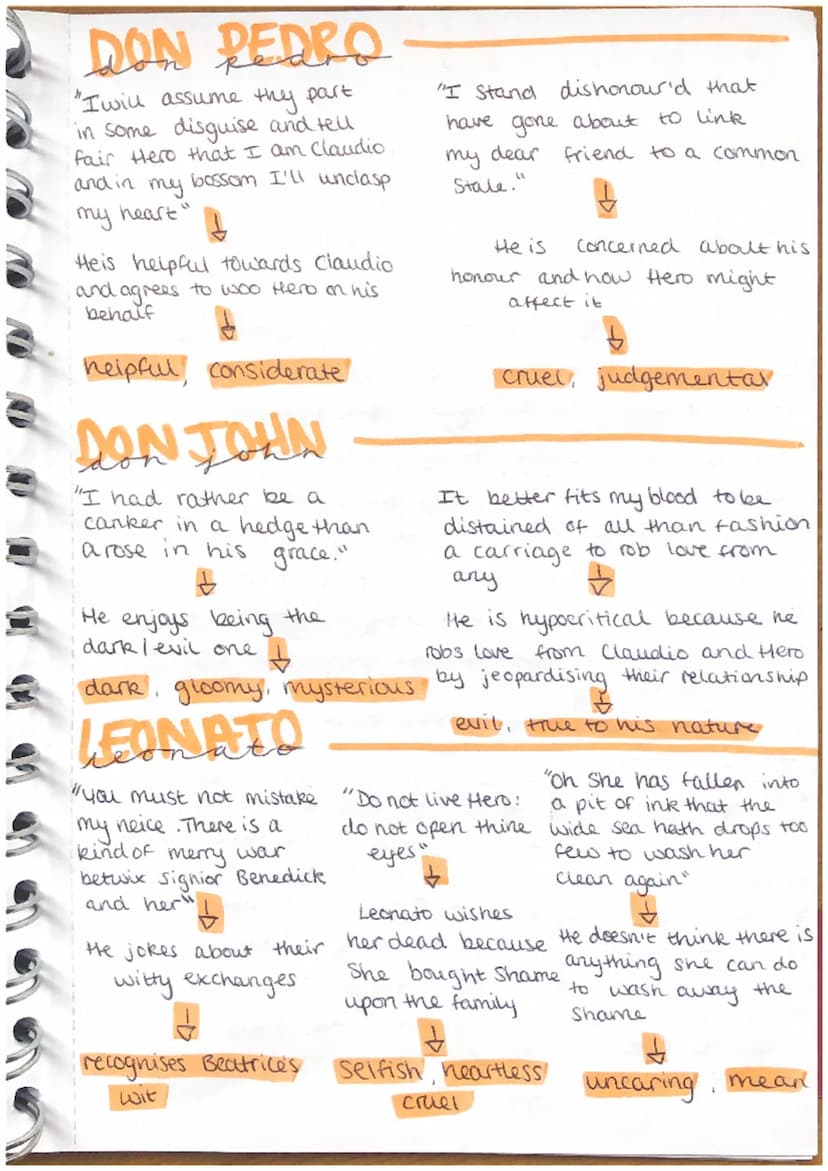 DON PEDRO
don pedro
"I will assume thy part
in some disguise and tell
fair Hero that I am Claudio
and in my bossom I'll unclasp
my heart"
He is helpful towards Claudio
and agrees to woo Hero on his
behalf
helpful, considerate
"I stand dishonour'd that
have gone about to link
my dear friend to a common
stale."
He is concerned about his
honour and how Hero might
affect it
cruel, judgemental
DON JOHN
don john
"I had rather be a
canker in a hedge than
a rose in his grace."
He enjoys being the
dark/evil one
dark, gloomy, mysterious
It better fits my blood to be
distained of all than fashion
a carriage to rob love from
any
He is hypocritical because he
robs love from Claudio and Hero
by jeopardising their relationship
evil, true to his nature
LEONATO
leonato
"you must not mistake
my neice. There is a
kind of merry war
betwix Signior Benedick
and her"
He jokes about their
witty exchanges
recognises Beatrice's
wit
"Do not live Hero:
do not open thine
eyes"
Leonato wishes
her dead because
she bought shame
upon the family
selfish, heartless
cruel
"Oh she has fallen into
a pit of ink that the
wide sea hath drops too
few to wash her
clean again"
He doesn't think there is
anything she can do
to wash away the
shame
uncaring, mean